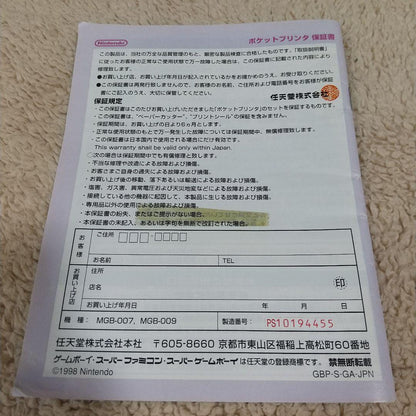 Nintendo
ポケットプリンタ 保証書
この製品は、当社の万全な品質管理のもと、厳密な製品検査に合格したものです。「取扱説明書」
に従ったお客様の正常なご使用状態で万一故障した場合は、この保証書に記載された内容により
修理致します。
●お買い上げ店、お買い上げ年月日が記入されているかをお確かめのうえ、お受け取りください。
●この保証書は再発行致しませんので、お客様のお名前、ご住所および電話番号をお客様が保証
書にご記入のうえ、大切に保管してください。
任天堂株式会社
保証規定
・この保証書はこのたびお買い上げいただきました「ポケットプリンタ」のセットを保証するものです。
・この保証書は、"ペーパーカッター"、"プリントシール"の保証を含みません。
・保証期間は、お買い上げの日より6ヵ月とします。
・正常な使用状態のもとで万一発生した故障については保証期間中、無償修理致します。
・この保証書は日本国内で使用される場合にだけ有効です。
This warranty shall be valid only within Japan.
◯次の場合は保証期間中でも有償修理と致します。
・不当な修理や改造による故障および損傷。
・お買い上げ後の移動、落下あるいは輸送による故障および損傷。
・塩害、ガス害、異常電圧および天災地変などによる故障および損傷。
・接続している他の機器に起因して、本製品に生じた故障および損傷。
・専用品以外の使用による故障および損傷。
・本保証書の紛失、またはご提示がない場合。
・本保証書の未記入、あるいは字句を無断で改訂された場合。
お客様
ご住所
お名前
TEL
お買い上げ店
住所
店名
印
お買い上げ年月日
年
月
日
機種:
MGB-007、MGB-009
製造番号:
PS10194455
任天堂株式会社本社 〒605-8660 京都市東山区福稲上高松町60番地
ゲームボーイ・スーパーファミコン・スーパーゲームボーイは任天堂の登録商標です。
禁無断転載
©1998 Nintendo
GBP-S-GA-JPN